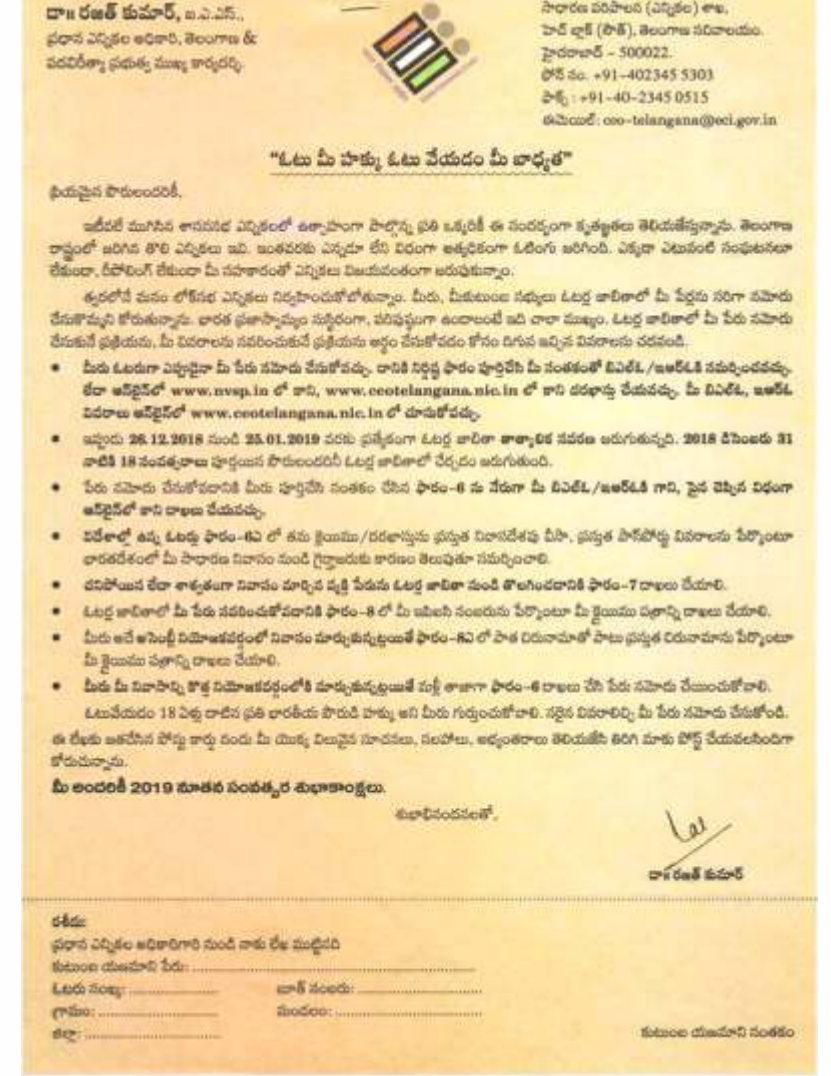 డా॥ రజత్ కుమార్, ఐ.ఎ.ఎస్.,
ప్రధాన ఎన్నికల అధికారి, తెలంగాణ &
పదవిరీత్యా ప్రభుత్వ ముఖ్య కార్యదర్శి.
సాధారణ పరిపాలన (ఎన్నికల) శాఖ,
హెడ్ బ్లాక్ (సౌత్), తెలంగాణ సచివాలయం.
హైదరాబాద్ - 500022.
ఫోన్ నం. +91-402345 5303
ఫాక్స్ : +91-40-2345 0515
ఈమెయిల్: ceo-telangana@eci.gov.in
"ఓటు మీ హక్కు ఓటు వేయడం మీ బాధ్యత"
ప్రియమైన పౌరులందరికీ,
ఇటీవలే ముగిసిన శాసనసభ ఎన్నికలలో ఉత్సాహంగా పాల్గొన్న ప్రతి ఒక్కరికీ ఈ సందర్భంగా కృతజ్ఞతలు తెలియజేస్తున్నాను. తెలంగాణ
రాష్ట్రంలో జరిగిన తొలి ఎన్నికలు ఇవి. ఇంతవరకు ఎన్నడూ లేని విధంగా అత్యధికంగా ఓటింగు జరిగింది. ఎక్కడా ఎటువంటి సంఘటనలూ
లేకుండా, రీపోలింగ్ లేకుండా మీ సహకారంతో ఎన్నికలు విజయవంతంగా జరుపుకున్నాం.
త్వరలోనే మనం లోక్‌సభ ఎన్నికలు నిర్వహించుకోబోతున్నాం. మీరు, మీకుటుంబ సభ్యులు ఓటర్ల జాబితాలో మీ పేర్లను సరిగా నమోదు
చేసుకొమ్మని కోరుతున్నాను. భారత ప్రజాస్వామ్యం సుస్థిరంగా, పరిపుష్టంగా ఉండాలంటే ఇది చాలా ముఖ్యం. ఓటర్ల జాబితాలో మీ పేరు నమోదు
చేసుకునే ప్రక్రియను, మీ వివరాలను సవరించుకునే ప్రక్రియను అర్థం చేసుకోవడం కోసం దిగువ ఇచ్చిన వివరాలను చదవండి.
• మీరు ఓటరుగా ఎప్పుడైనా మీ పేరు నమోదు చేసుకోవచ్చు. దానికి నిర్దిష్ట ఫారం పూర్తిచేసి మీ సంతకంతో బిఎల్ఓ/ఇఆర్ఓకి సమర్పించవచ్చు.
లేదా ఆన్‌లైన్‌లో www.nvsp.in లో కాని, www.ceotelangana.nic.in లో కాని దరఖాస్తు చేయవచ్చు. మీ బిఎల్ఓ, ఇఆర్ఓ
వివరాలు ఆన్‌లైన్‌లో www.ceotelangana.nic.in లో చూసుకోవచ్చు.
• ఇప్పుడు 26.12.2018 నుండి 25.01.2019 వరకు ప్రత్యేకంగా ఓటర్ల జాబితా తాత్కాలిక సవరణ జరుగుతున్నది. 2018 డిసెంబరు 31
నాటికి 18 సంవత్సరాలు పూర్తయిన పౌరులందరినీ ఓటర్ల జాబితాలో చేర్చడం జరుగుతుంది.
• పేరు నమోదు చేసుకోవడానికి మీరు పూర్తిచేసి సంతకం చేసిన ఫారం-6 ను నేరుగా మీ బిఎల్ఓ/ఇఆర్ఓకి గాని, పైన చెప్పిన విధంగా
ఆన్‌లైన్‌లో కాని దాఖలు చేయవచ్చు.
• విదేశాల్లో ఉన్న ఓటర్లు ఫారం-6ఎ లో తమ క్లెయిము/దరఖాస్తును ప్రస్తుత నివాసదేశపు వీసా, ప్రస్తుత పాస్‌పోర్టు వివరాలను పేర్కొంటూ
భారతదేశంలో మీ సాధారణ నివాసం నుండి గైర్హాజరుకు కారణం తెలుపుతూ సమర్పించాలి.
• చనిపోయిన లేదా శాశ్వతంగా నివాసం మార్చిన వ్యక్తి పేరును ఓటర్ల జాబితా నుండి తొలగించడానికి ఫారం-7 దాఖలు చేయాలి.
• ఓటర్ల జాబితాలో మీ పేరు సవరించుకోవడానికి ఫారం-8 లో మీ ఇపిఐసి నంబరును పేర్కొంటూ మీ క్లెయిము పత్రాన్ని దాఖలు చేయాలి.
• మీరు అదే అసెంబ్లీ నియోజకవర్గంలో నివాసం మార్చుకున్నట్లయితే ఫారం-8ఎ లో పాత చిరునామాతో పాటు ప్రస్తుత చిరునామాను పేర్కొంటూ
మీ క్లెయిము పత్రాన్ని దాఖలు చేయాలి.
• మీరు మీ నివాసాన్ని కొత్త నియోజకవర్గంలోకి మార్చుకున్నట్లయితే మళ్లీ తాజాగా ఫారం-6 దాఖలు చేసి పేరు నమోదు చేయించుకోవాలి.
ఓటువేయడం 18 ఏళ్లు దాటిన ప్రతి భారతీయ పౌరుడి హక్కు అని మీరు గుర్తుంచుకోవాలి. సరైన వివరాలిచ్చి మీ పేరు నమోదు చేసుకోండి.
ఈ లేఖకు జతచేసిన పోస్టు కార్డు నందు మీ యొక్క విలువైన సూచనలు, సలహాలు, అభ్యంతరాలు తెలియజేసి తిరిగి మాకు పోస్ట్ చేయవలసిందిగా
కోరుచున్నాను.
మీ అందరికీ 2019 నూతన సంవత్సర శుభాకాంక్షలు.
శుభాభినందనలతో,
డా॥ రజత్ కుమార్
రశీదు:
ప్రధాన ఎన్నికల అధికారిగారి నుండి నాకు లేఖ ముట్టినది
కుటుంబ యజమాని పేరు:
ఓటరు సంఖ్య: బూత్ నంబరు:
గ్రామం: మండలం:
జిల్లా: కుటుంబ యజమాని సంతకం